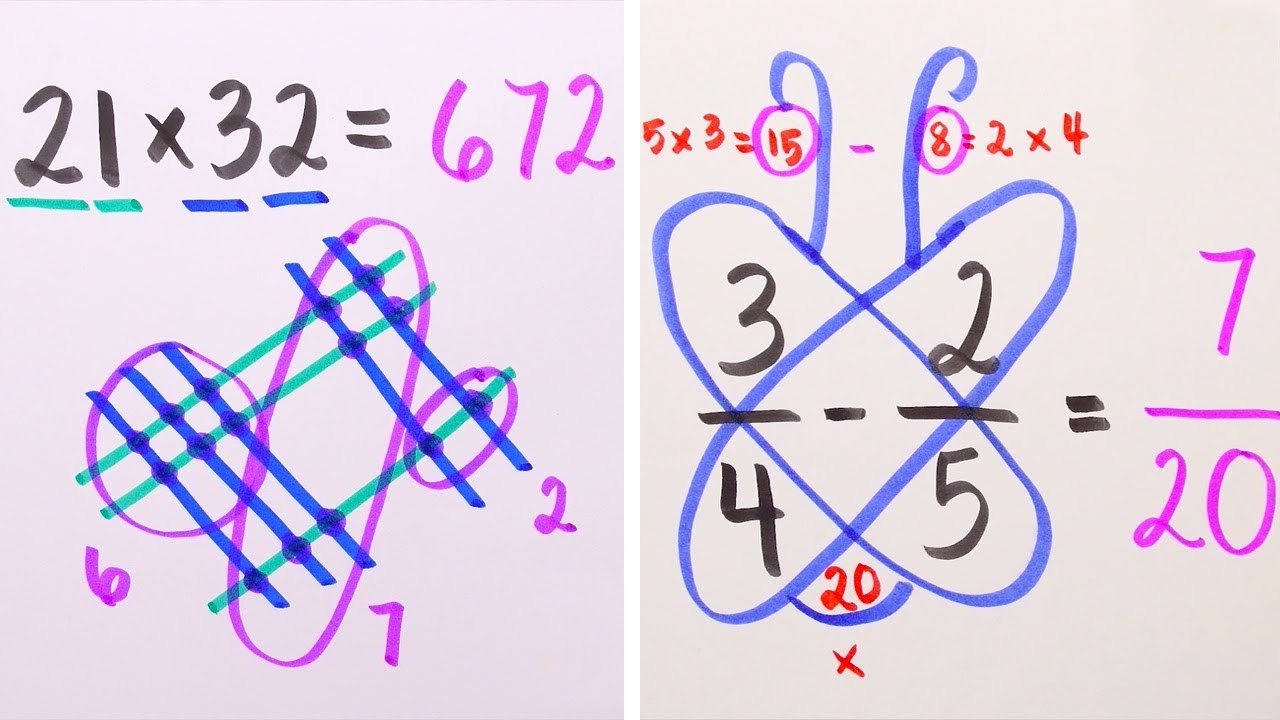 21 × 32 = 672
6
7
2
5 × 3 = 15 - 8 = 2 × 4
3/4 - 2/5 = 7/20
20
×